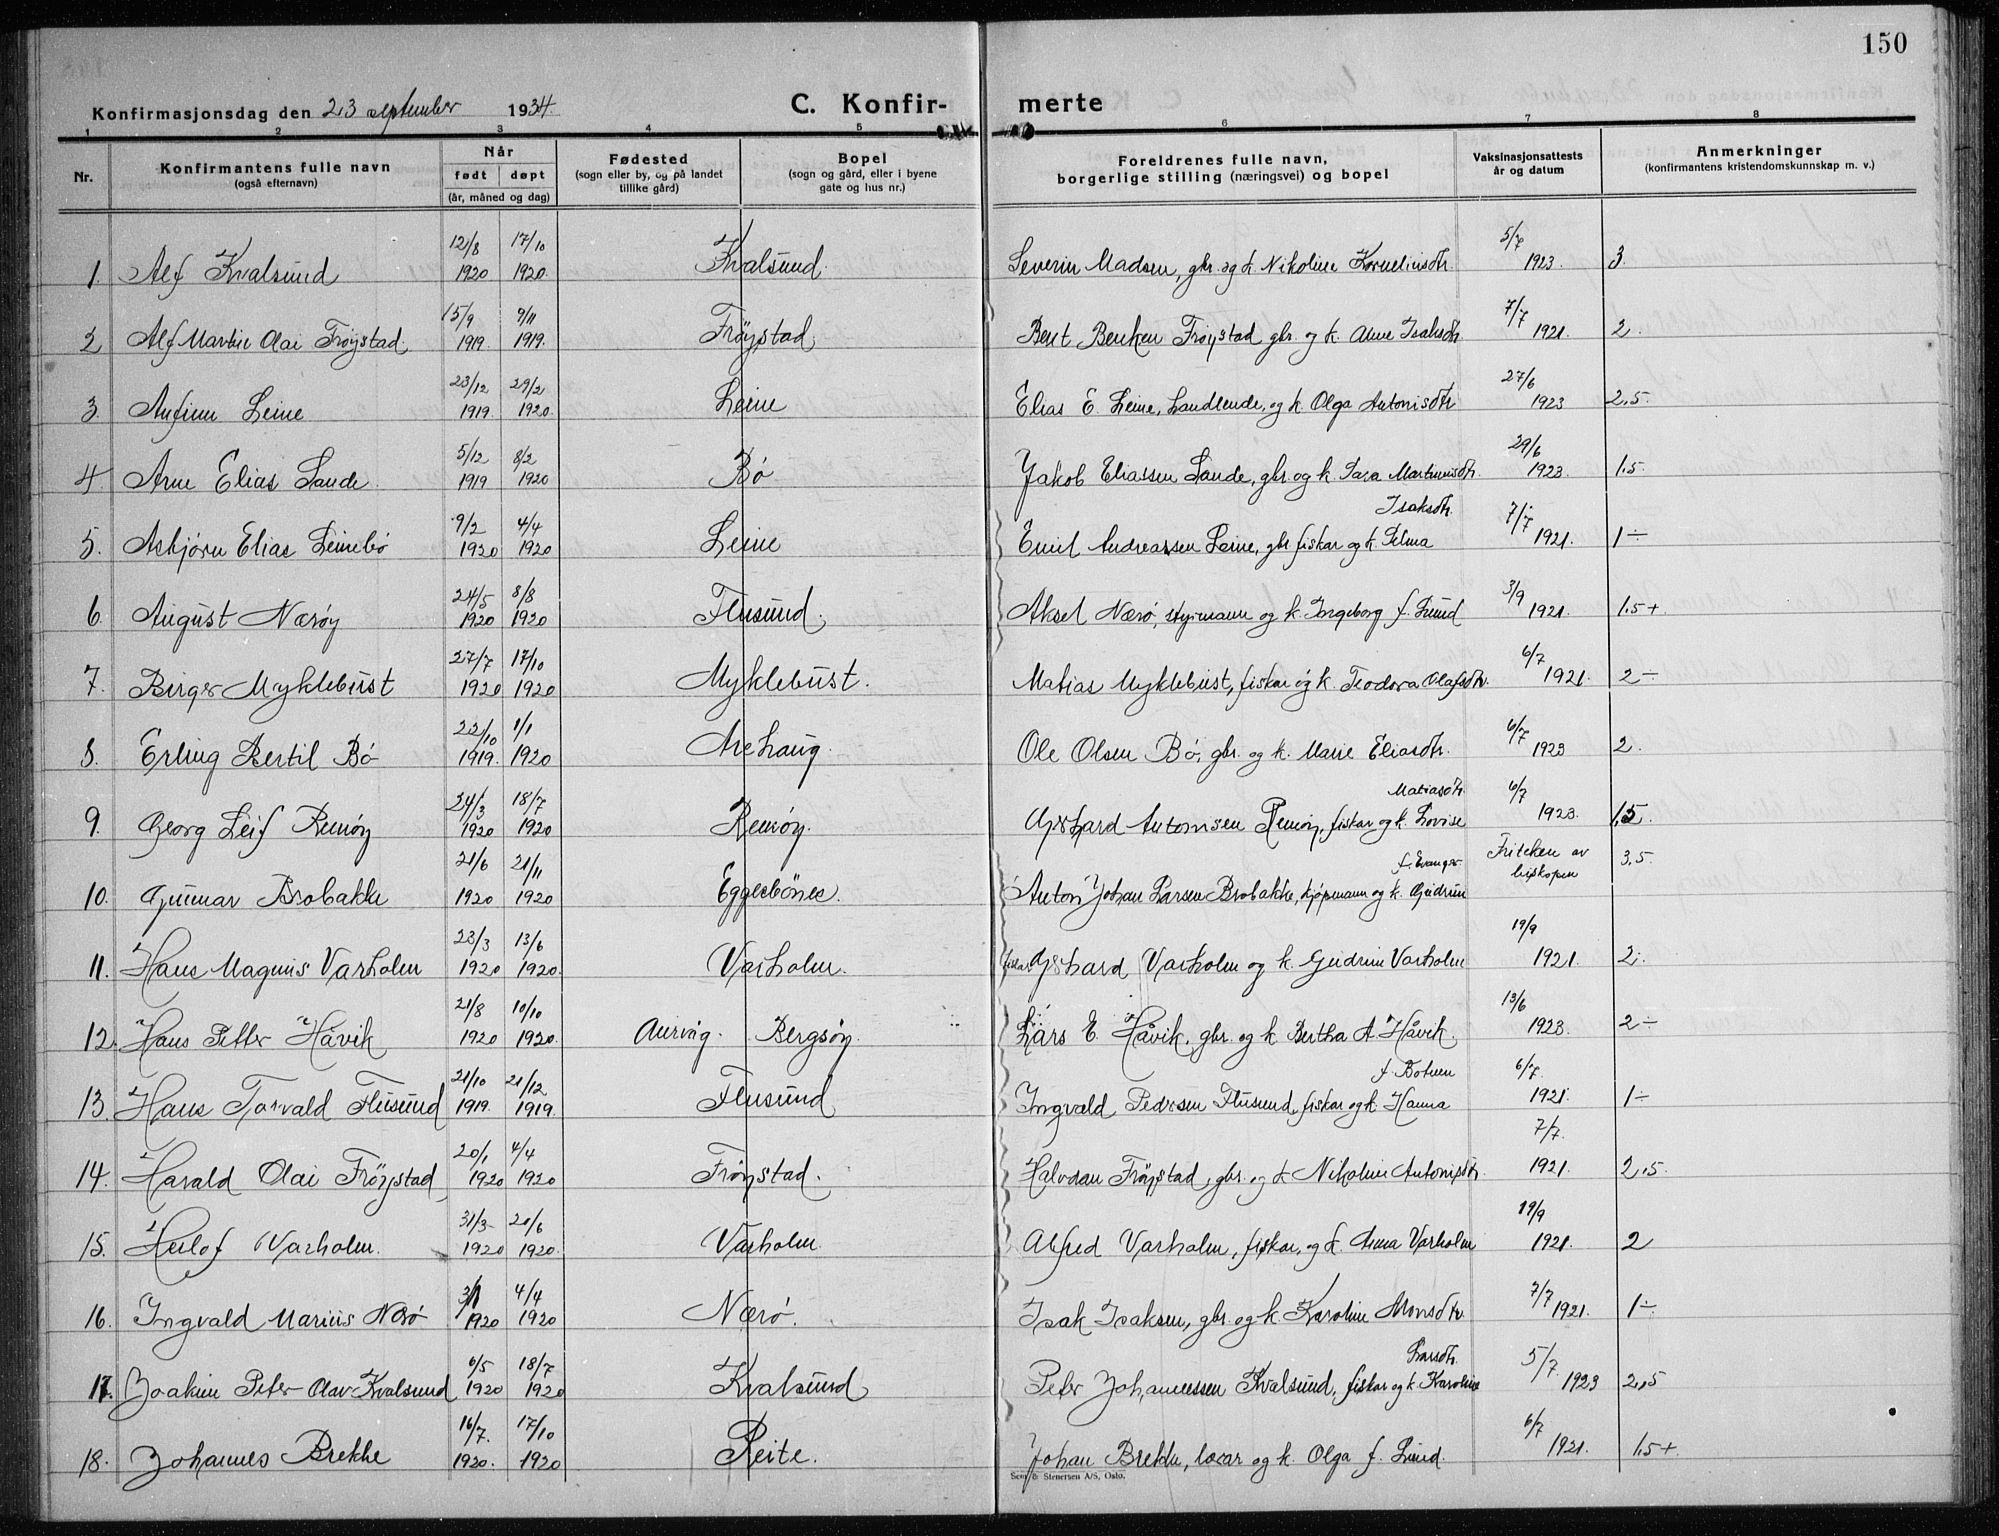 150
Konfirmasjonsdag den 23 september 1934. C. Konfir- merte
1 2 3 4 5 6 7 8
Nr. Konfirmantens fulle navn (også efternavn) Når født døpt (år, måned og dag) Fødested (sogn eller by, og på landet tillike gård) Bopel (sogn og gård, eller i byene gate og hus nr.) Foreldrenes fulle navn, borgerlige stilling (næringsvei) og bopel Vaksinasjonsattests år og datum Anmerkninger (konfirmantens kristendomskunnskap m. v.)
1. Alf Kvalsund 12/8 1920 17/10 1920. Kvalsund. Severin Madsen, gbr. og k. Nikoline Korneliusdtr. 5/7 1923. 3.
2 Alf Martin Olai Frøystad 15/9 1919. 9/11 1919. Frøystad. Bent Bentsen Frøystad gbr. og k. Anne Isaksdtr. 7/7 1921. 2.
3. Anfinn Leine 23/12 1919. 29/2 1920. Leine Elias E. Leine, Landhende, og k. Olga Antonisdtr 27/6 1923 2,5.
4. Arne Elias Sande. 5/12 1919 8/2 1920 Bø Jakob Eliassen Sande, gbr. og k. Sara Martinusdtr. 29/6 1923. 1.5
5. Asbjørn Elias Leinebø 9/2 1920 4/4 1920 Leine Emil Andreassen Leine, gbr fiskar og k. Pelma Isaksdtr. 7/7 1921. 1÷
6. August Nærøy 24/5 1920 8/8 1920 Flusund. Aksel Nærø, styrmann og k. Ingeborg f. Lund 3/9 1921. 1.5+
7. Birger Myklebust 27/7 1920 17/10 1920 Myklebust. Matias Myklebust, fiskar og k. Teodora Olafsdtr. 6/7 1921. 2÷
8. Erling Bertil Bø 22/10 1919. 1/1 1920 Arehaug. Ole Olsen Bø, gbr. og k. Marie Eliasdtr. 6/7 1923 2.
9. Georg Leif Remøy 24/3 1920 18/7 1920 Remøy. Gerhard Antonsen Remøy, fiskar og k. Lovise Matiasdtr. 6/7 1923. 1,5.
10. Gunnar Brobakke 21/6 1920 21/11 1920 Eggesbønes. Anton Johan Larsen Brobakke, kjøpmann og k. Gudrun f. Evanger Friteken av biskopen 3,5.
11. Hans Magnus Varholm 23/3 1920 13/6 1920. Varholm. fiskar Gerhard Varholm og k. Gudrun Varholm 19/9 1921. 2.
12. Hans Petter Håvik 21/8 1920 10/10 1920. Aurvåg. Bergsøy. Lars E. Håvik, gbr. og k Bertha A Håvik. 13/6 1923. 2÷
13. Hans Torvald Flusund 21/10 1919. 21/12 1919. Flusund Ingvald Pedersen Flusund, fiskar og k. Hanna f. Botnen 6/7. 1921. 1÷
14. Harald Olai Frøystad 20/1 1920 4/4 1920 Frøystad. Halvdan Frøystad, gbr. og k Nikoline Antonisdtr. 7/7. 1921. 2.5
15. Herlof Varholm. 31/3 1920 20/6 1920. Varholm. Alfred Varholm, fiskar, og k. Anna Varholm 19/9 1921. 2
16. Ingvald Marius Nærø 3/1 1920 4/4 1920 Nærø. Isak Isaksen, gbr. og k. Karoline Monsdtr. 7/7 1921. 1÷
17. Joakim Peter Olav Kvalsund 6/5 1920 18/7 1920 Kvalsund Peter Johannessen Kvalsund, fiskar og k. Karoline Larsdtr. 5/7. 1923 2,5
18. Johannes Brekke 16/7. 1920. 17/10 1920 Reite. Johan Brekke, lærar og k. Olga f. Lund. 6/7 1921. 1.5+.
Sem & Stenersen A/S, Oslo.